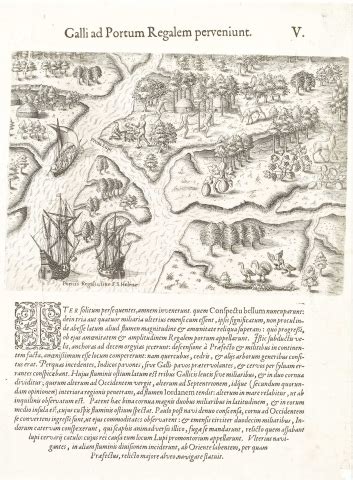 Galli ad Portum Regalem perveniunt. V.
Portus Regalis, sive F. S. Helenæ
ITER solitum persequentes, amnem invenerunt quem Conspectu bellum nuncuparunt:
dein tria aut quatuor miliaria ulterius emensi cum essent, ipsis significatum, non procul in-
de abesse latum aliud flumen magnitudine & amœnitate reliqua superans: quò progressi,
ob ejus amœnitatem & amplitudinem Regalem portum appellarunt. Istic subductis ve-
lis, anchoras ad decem orgyas jecerunt:
tem facta, amœnissimum esse locum compererunt: nam quercubus, cedris, & aliis arborum generibus consi-
tus erat. Perquas incedentes, Indicos pavones, sive Gallo pavos prætervolantes, & cervos per silvam er-
rantes conspiciebant. Hujus fluminis ostium latum est tribus Gallicis leucis sive miliaribus, & in duo cornua
dividitur, quorum alterum ad Occidentem vergit, alterum ad Septentrionem,
alterum in mare relabitur, ut ab
inquilinis observatum est. Patent hæc bina cornua magnis duobus miliaribus in latitudinem, & in eorum
medio insula est, cujus cuspis fluminis ostium spectat. Paulò post navi denuo conscensa, cornu ad Occidentem
se converterunt ingressi sunt, ut ejus commoditates observarent: & emensi circiter duodecim miliaribus, In-
dorum catervam conspexerunt, qui scaphis animadversis illico, fuga se mandarunt, relicto quem assabant
lupi cervarij catulo: cujus rei causa eum locum Lupi promontorium appellarunt. Ulterius navi-
gantes, in aliam fluminis divisionem inciderunt, ab Oriente labentem, per quam
Præfectus, relicto majore alveo, navigare statuit.